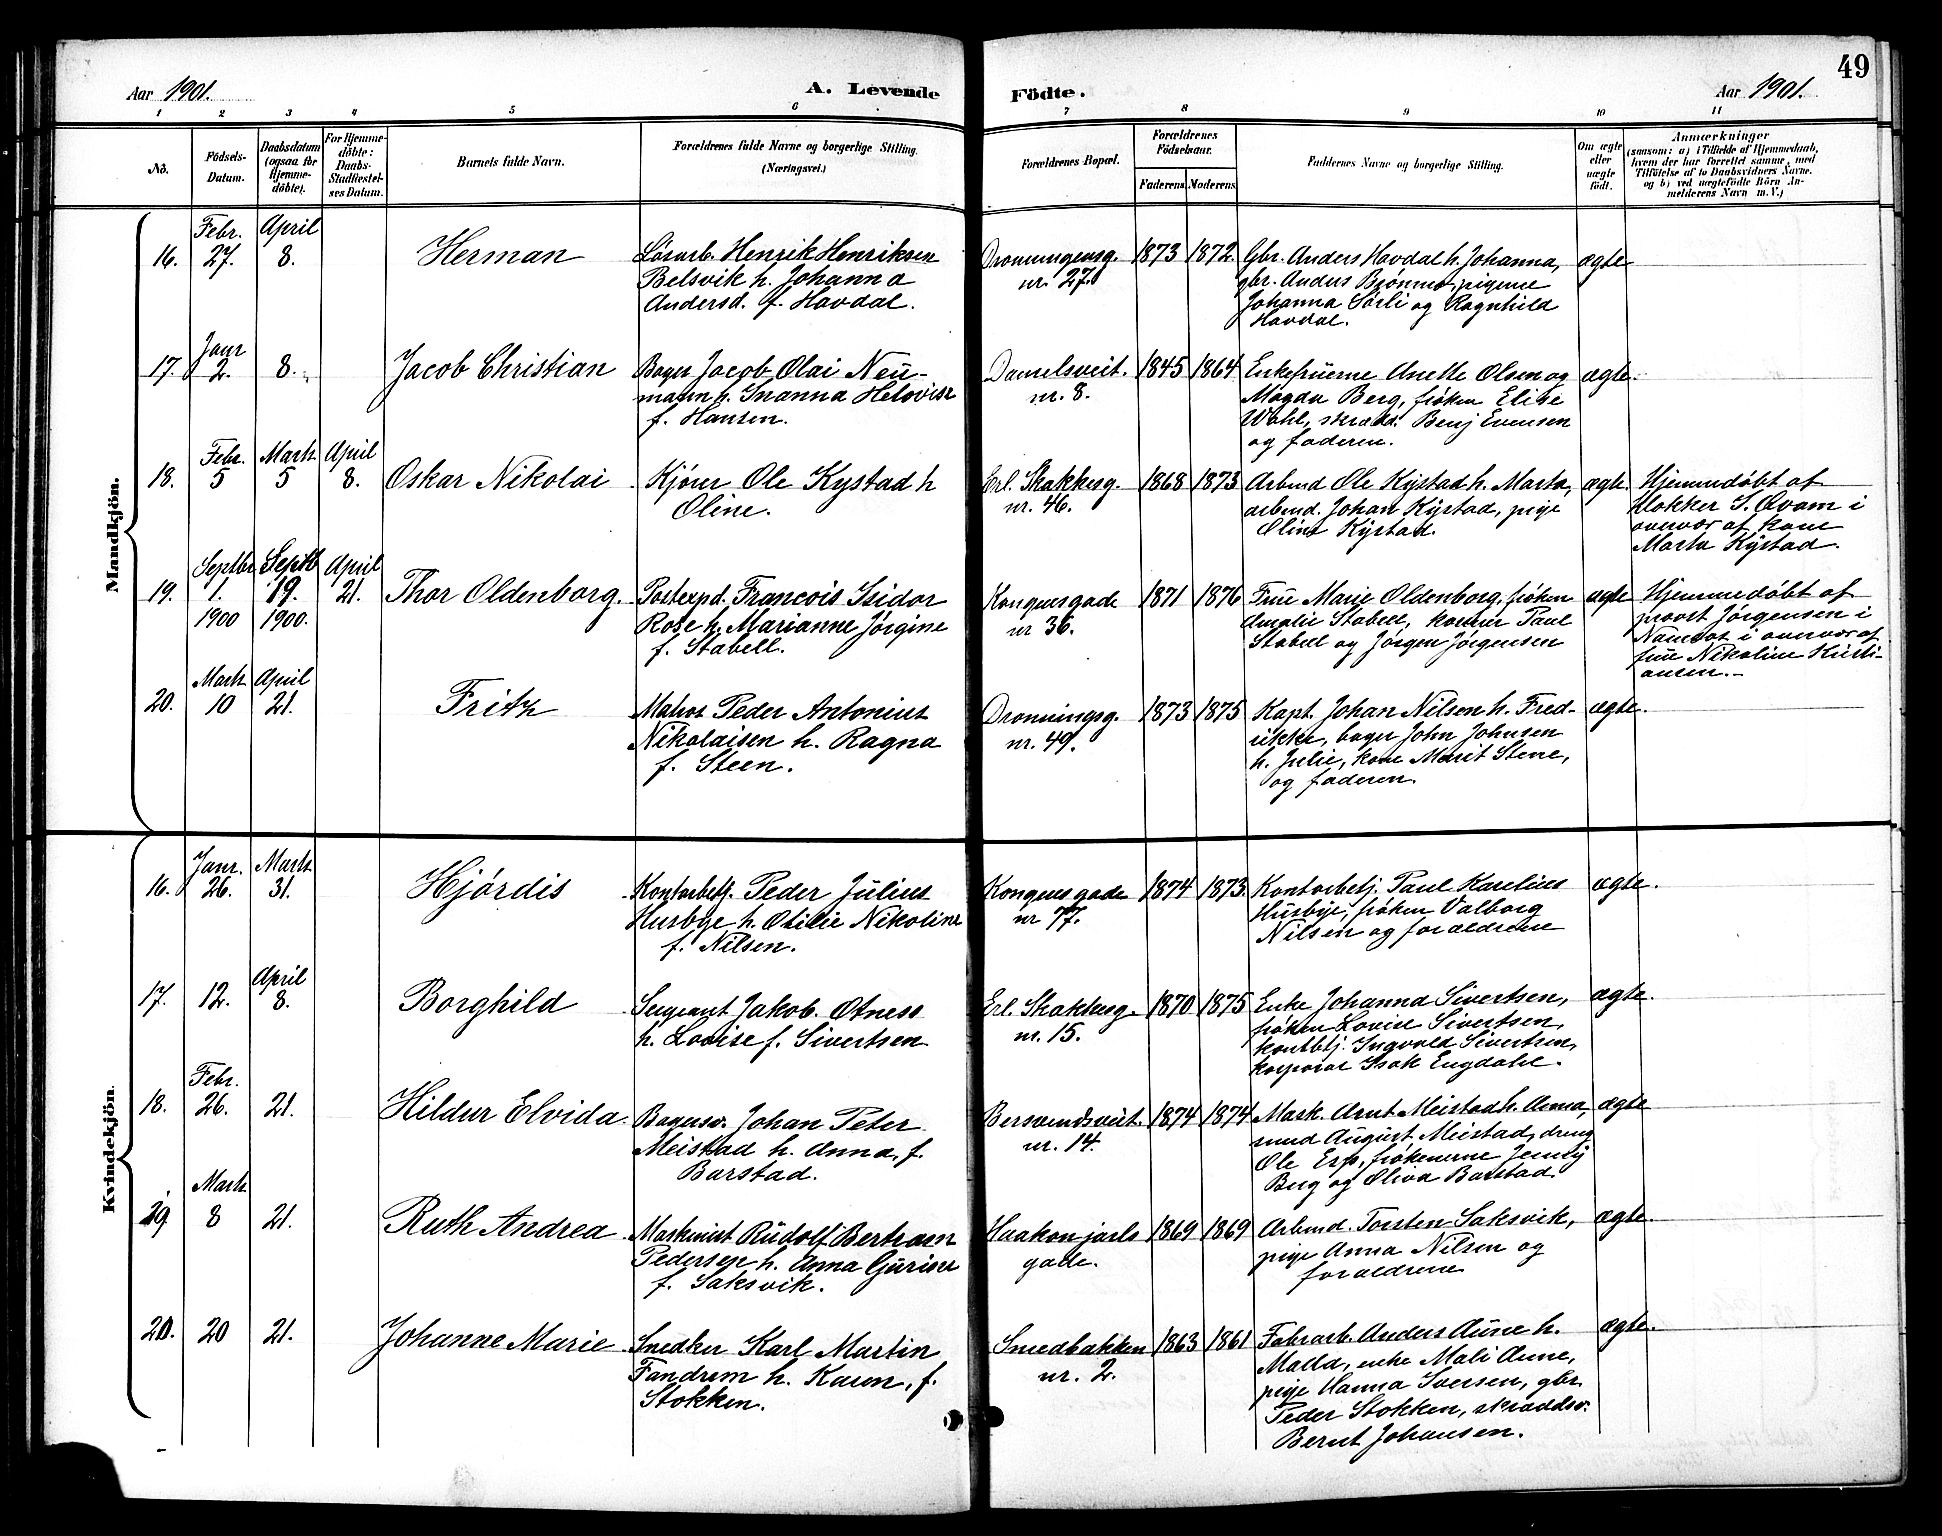 49
Aar 1901.
A. Levende
Födte.
Aar 1901.
1 2 3 4 5 6 7 8 9 10 11
No.
Födsels-Datum.
Daabsdatum (ogsaa for Hjemme-döbte).
For Hjemme-döbte: Daabs-Stadfæstel-ses Datum.
Barnets fulde Navn.
Forældrenes fulde Navne og borgerlige Stilling. (Næringsvei.)
Forældrenes Bopæl.
Forældrenes Födselsaar.
Faderens. Moderens.
Faddernes Navne og borgerlige Stilling.
Om ægte eller uægte födt.
Anmærkninger
(saasom: a) i Tilfælde af Hjemmedaab,
hvem der har forrettet samme, med
Tilföielse af to Daabsvidners Navne.
og b) ved uægtefödte Börn An-
melderens Navn m. V.)
Mandkjön.
16. Febr. 27. April 8. Herman
Løsarb. Henrik Henriksen
Belsvik h. Johanna
Andersd. f. Havdal.
Dronningensg.
nr. 27.
1873 1872.
Gbr. Anders Havdal h. Johanna,
gbr. Anders Bjønnes, pigerne
Johanna Sørli og Ragnhild
Havdal.
ægte
17. Janr 2. 8. Jacob Christian
Bager Jacob Olai Neu-
mann h. Susanna Helovise
f. Hansen.
Danielsveit.
nr. 8.
1845 1864
Enkefruerne Anette Olsen og
Magda Berg, frøken Elise
Wahl, skrædd. Benj Evensen
og faderen.
ægte.
18. Febr. 5 Marts 5 April 8. Oskar Nikolai
Kjører Ole Kystad h
Oline.
Erl. Skakkesg.
nr. 46.
1868 1873
Arbmd Ole Kystad h. Marta,
arbmd. Johan Kystad, pige
Oline Kystad.
ægte.
Hjemmedøbt af
klokker S. Qvam i
overvær af kone
Marta Kystad.
19. Septbr 1. 1900 Septb 19. 1900. April 21. Thor Oldenborg.
Postexpd. Francois Isidor
Rose h. Marianne Jørgine
f. Stabell.
Kongensgade
nr 36.
1871 1876
Frue Marie Oldenborg, frøken
Amalie Stabell, kontor Paul
Stabell og Jørgen Jørgensen
ægte
Hjemmedøbt af
provst Jørgensen i
Namsos i overvær af
frue Nikoline Kristi-
ansen.-
20. Marts 10 April 21. Fritz
Matros Peder Antonius
Nikolaisen h. Ragna
f. Steen.
Dronningsg.
nr. 49.
1873 1875
Kapt. Johan Nilsen h. Fred-
rikke, bager John Johnsen
h. Julie, kone Marit Stene,
og faderen.
ægte.
Kvindekjön.
16. Janr. 26. Marts 31. Hjørdis
Kontorbetj. Peder Julius
Husbye h. Otilie Nikoline
f. Nilsen.
Kongens gade
nr 77.
1874 1873.
Kontorbetj. Paul Karelius
Husbye, frøken Valborg
Nilsen og forældrene
ægte.
17. 12. April 8. Borghild
Sergeant Jakob Otness
h. Lovise f. Sivertsen
Erl. Skakkesg.
nr. 15.
1870 1875
Enke Johanna Sivertsen,
frøken Lovise Sivertsen,
kontbetj. Ingvald Sivertsen,
korporal Isak Engdahl.
ægte.
18. Febr. 26. 21. Hildur Elvida
Bagersv. Johan Peter
Meistad h. Anna, f.
Barstad.
Bersvendsveit.
nr. 14.
1874 1874
Mask. Arnt Meistad h. Anna,
smed August Meistad, dreng
Ole Esp, frøkenerne Jenny
Berg og Oliva Barstad.
ægte
19 Marts 8 21. Ruth Andrea
Maskinist Rudolf Bertram
Pedersen h. Anna Gurine
f. Saksvik.
Haakon jarls
gade.
1869 1869
Arbmd. Torsten Saksvik,
pige Anna Nilsen og
forældrene
ægte.
20. 20 21. Johanne Marie
Snedker Karl Martin
Fandrem h. Karen, f.
Stokken.
Smedbakken
nr. 2.
1863 1861
Fabrarb. Anders Aune h.
enke Mali Aune,
pige Hanna Iversen, gbr.
Peder Stokken, skræddsv.
Bernt Johansen.
ægte.